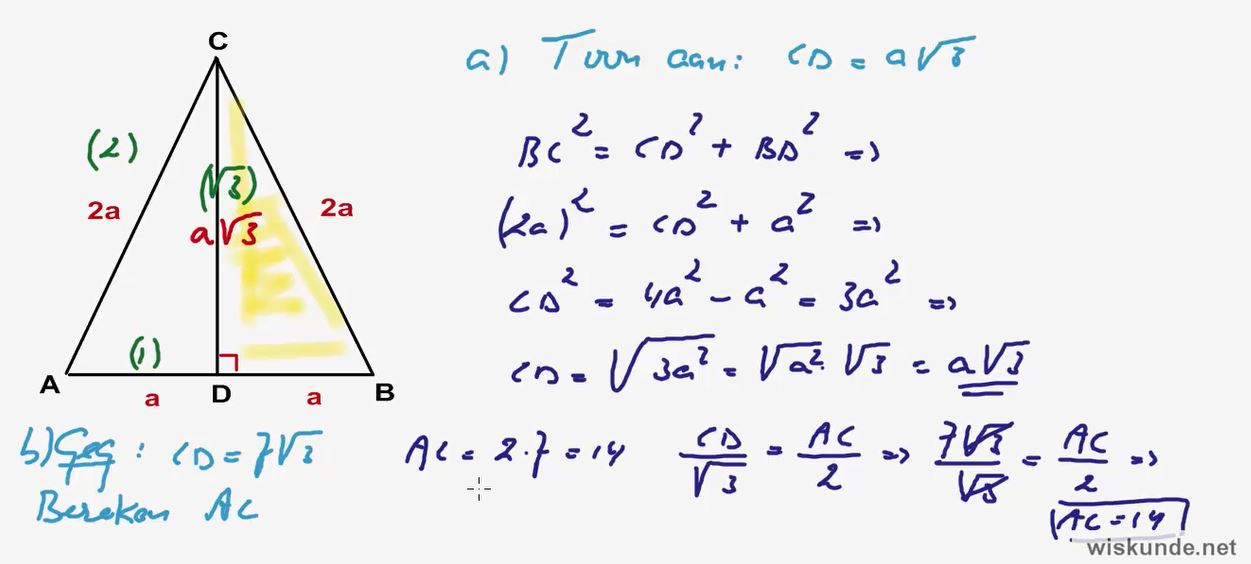 C
(2)
2a
(√3)
a√3
2a
(1)
A
a
D
a
B
a) Toon aan: CD = a√3
BC² = CD² + BD² =>
(2a)² = CD² + a² =>
CD² = 4a² - a² = 3a² =>
CD = √3a² = √a² · √3 = a√3
b) Geg : CD = 7√3
Bereken AC
AC = 2 · 7 = 14
CD/√3 = AC/2 => 7√3/√3 = AC/2 =>
AC = 14
wiskunde.net